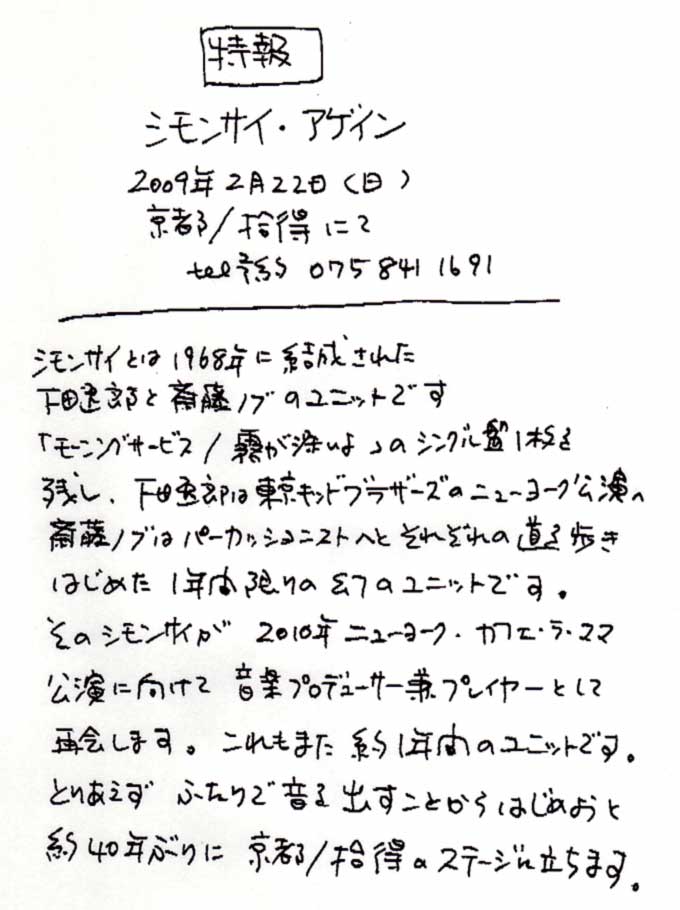 特報
シモンサイ・アゲイン
2009年2月22日（日）
京都/拾得にて
tel予約 075 841 1691
シモンサイとは1968年に結成された
下田逸郎と斎藤ノブのユニットです
「モーニングサービス/霧が深いよ」のシングル盤1枚を
残し、下田逸郎は東京キッドブラザーズのニューヨーク公演へ
斎藤ノブはパーカッショニストへとそれぞれの道を歩き
はじめた1年間限りの幻のユニットです。
そのシモンサイが 2010年ニューヨーク・カフェ・ラ・ママ
公演に向けて 音楽プロデューサー兼プレイヤーとして
再会します。これもまた約1年間のユニットです。
とりあえず ふたりで音を出すことからはじめようと
約40年ぶりに 京都/拾得のステージに立ちます。